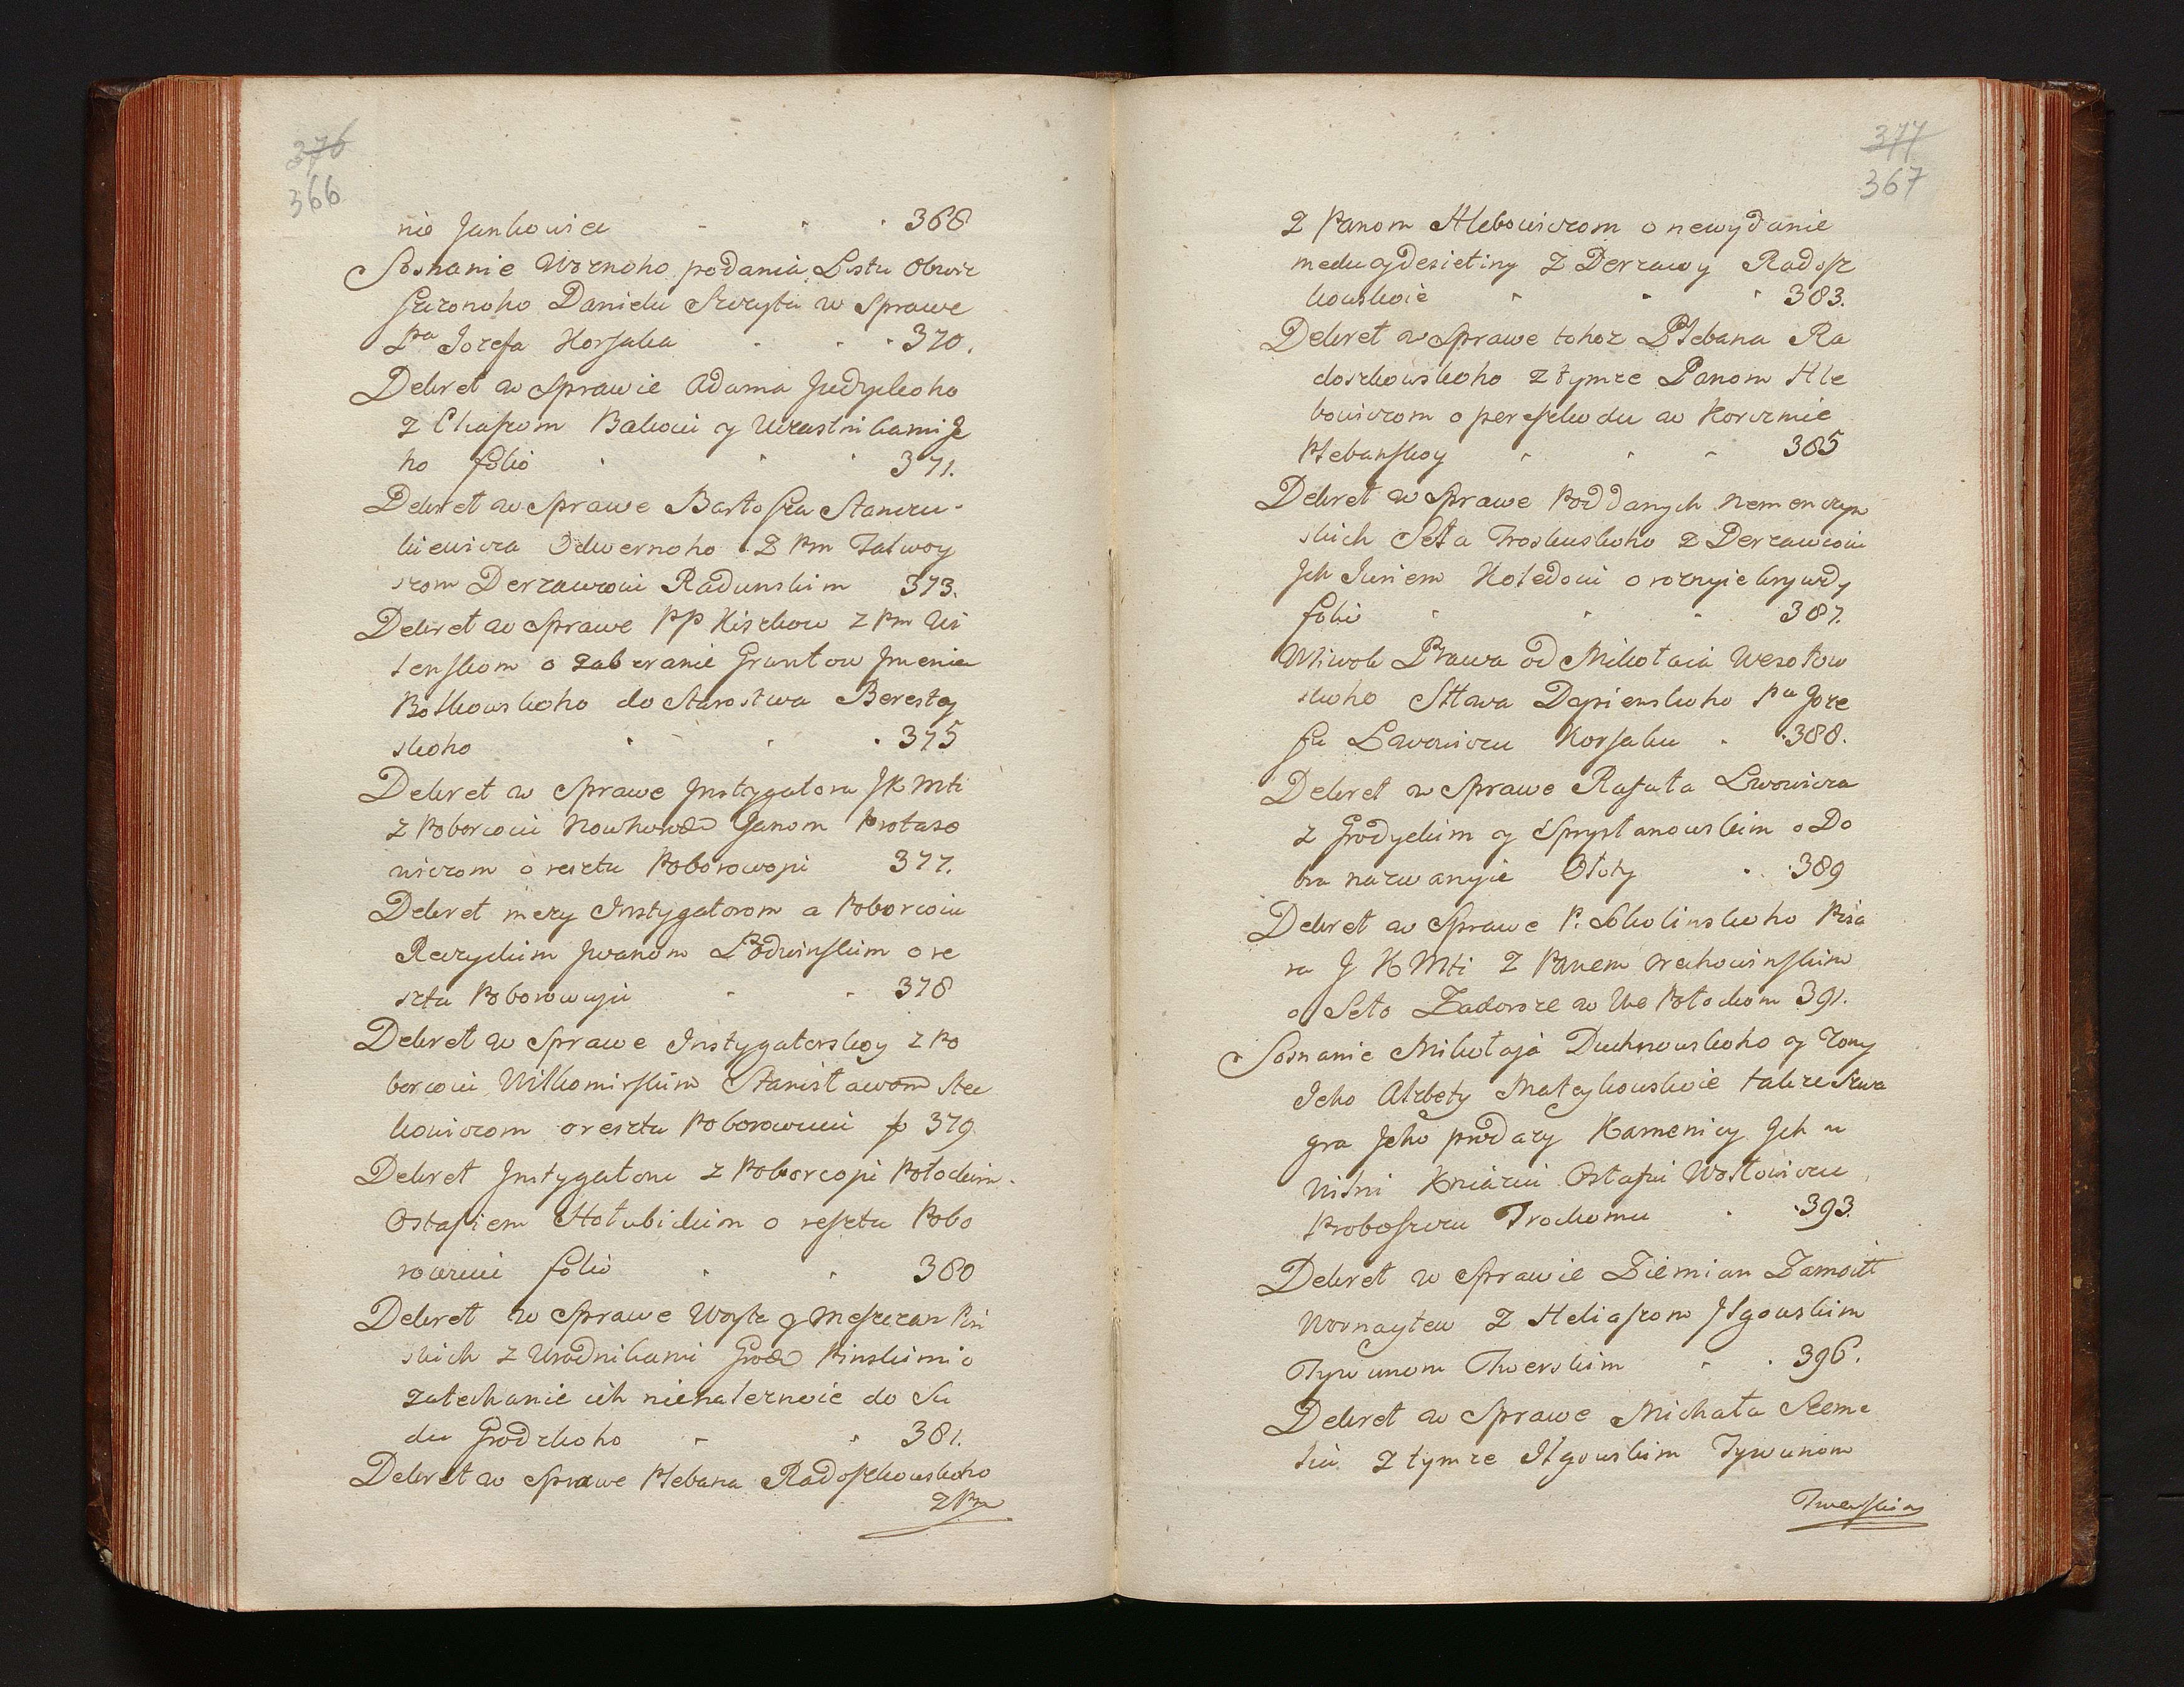 376
366
nie Jankowicz - - - 368
Soznanie Woznoho podania Listu Obwie
szczonoho Danielu Szczytu w Sprawe
Pna Jozefa Korsaka - - - 370.
Dekret w Sprawie Adama Judyckoho
z Chaskom Bakoui y Uczastnikami Je
ho folio - - - 371.
Dekret w Sprawe Bartosza Stanczu-
kiewicza Odwernoho z Pm Talwoy
szom Derzawcoiu Radunskim 373.
Dekret w Sprawe PP Kiszkow z Pm Wi
lenskom o zaberanie Gruntow Jmenia
Botkowskoho do Starostwa Berestey
skoho - - - 375
Dekret w Sprawe Instygatora JK Mti
z Poborcoiu Nowhorod Janom Protaso
wiczom o resztu Poborowoju 377.
Dekret mezy Instygatorom a Poborcoiu
Reczyckim Iwanom Podwinskim o re
sztu Poborowuju - - 378
Dekret w Sprawe Instygatorskoy z Po
borcoiu Wilkomirskim Stanisławom Stec
kowiczom o resztu Poborowuiu fo 379
Dekret Instygatora z Poborcoju Połockim.
Ostafiem Hołubickim o resztu Pobo
rowuiu folio - - 380
Dekret w Sprawe Woyta y Meszczan Pin
skich z Uradnikami Grod Pinskimi o
zatechanie ich nienaleznoie do Su
du Grodzkoho - - 381.
Dekret w Sprawe Plebana Radoszkowskoho
z Pm
377
367
z Panom Hlebowiczom o newydanie
medu y desietiny z Derzawy Radosz
kowskoie - - - 383.
Dekret w Sprawe tohoz Plebana Ra
doszkowskoho z tymze Panom Hle
bowiczom o pereszkodu w Korczmie
Plebanskoy - - - 385
Dekret w Sprawe Poddanych Nemenczyn
skich Seła Troskuskoho z Derzawcoiu
Jch Juriem Holedoiu o roznyie krywdy
folio - - - 387.
Wliwok Prawa od Mikołaia Wesołow
skoho Sława Dopienskoho Pu Joze
fu Lwowiczu Korsaku - 388.
Dekret w Sprawe Rafała Lwowicza
z Grodyckim y Spryskanowskim o Do
bra nazwanyie Ołoty - 389
Dekret w Sprawe P. Sokolinskoho Pisa
ra J K Mti z Panem Orechowinskim
o Seło Zadoroze w We Połockom 391.
Soznanie Mikołaja Duchnowskoho y Zony
Jeho Alzbety Mateykowskoie takze Szwa
gra Jeho prodazy Kamenicy Jch u
Wilni Kniaziu Ostafiu Wołłowiczu
Proboszczu Trockomu - 393.
Dekret w Sprawie Ziemian Zamoitt
Wornaytew z Heliaszom Ilgowskim
Tywunom Twerskim - - 396.
Dekret w Sprawe Michała Szeme
tia z tymze Ilgowskim Tywunom
Twerskim